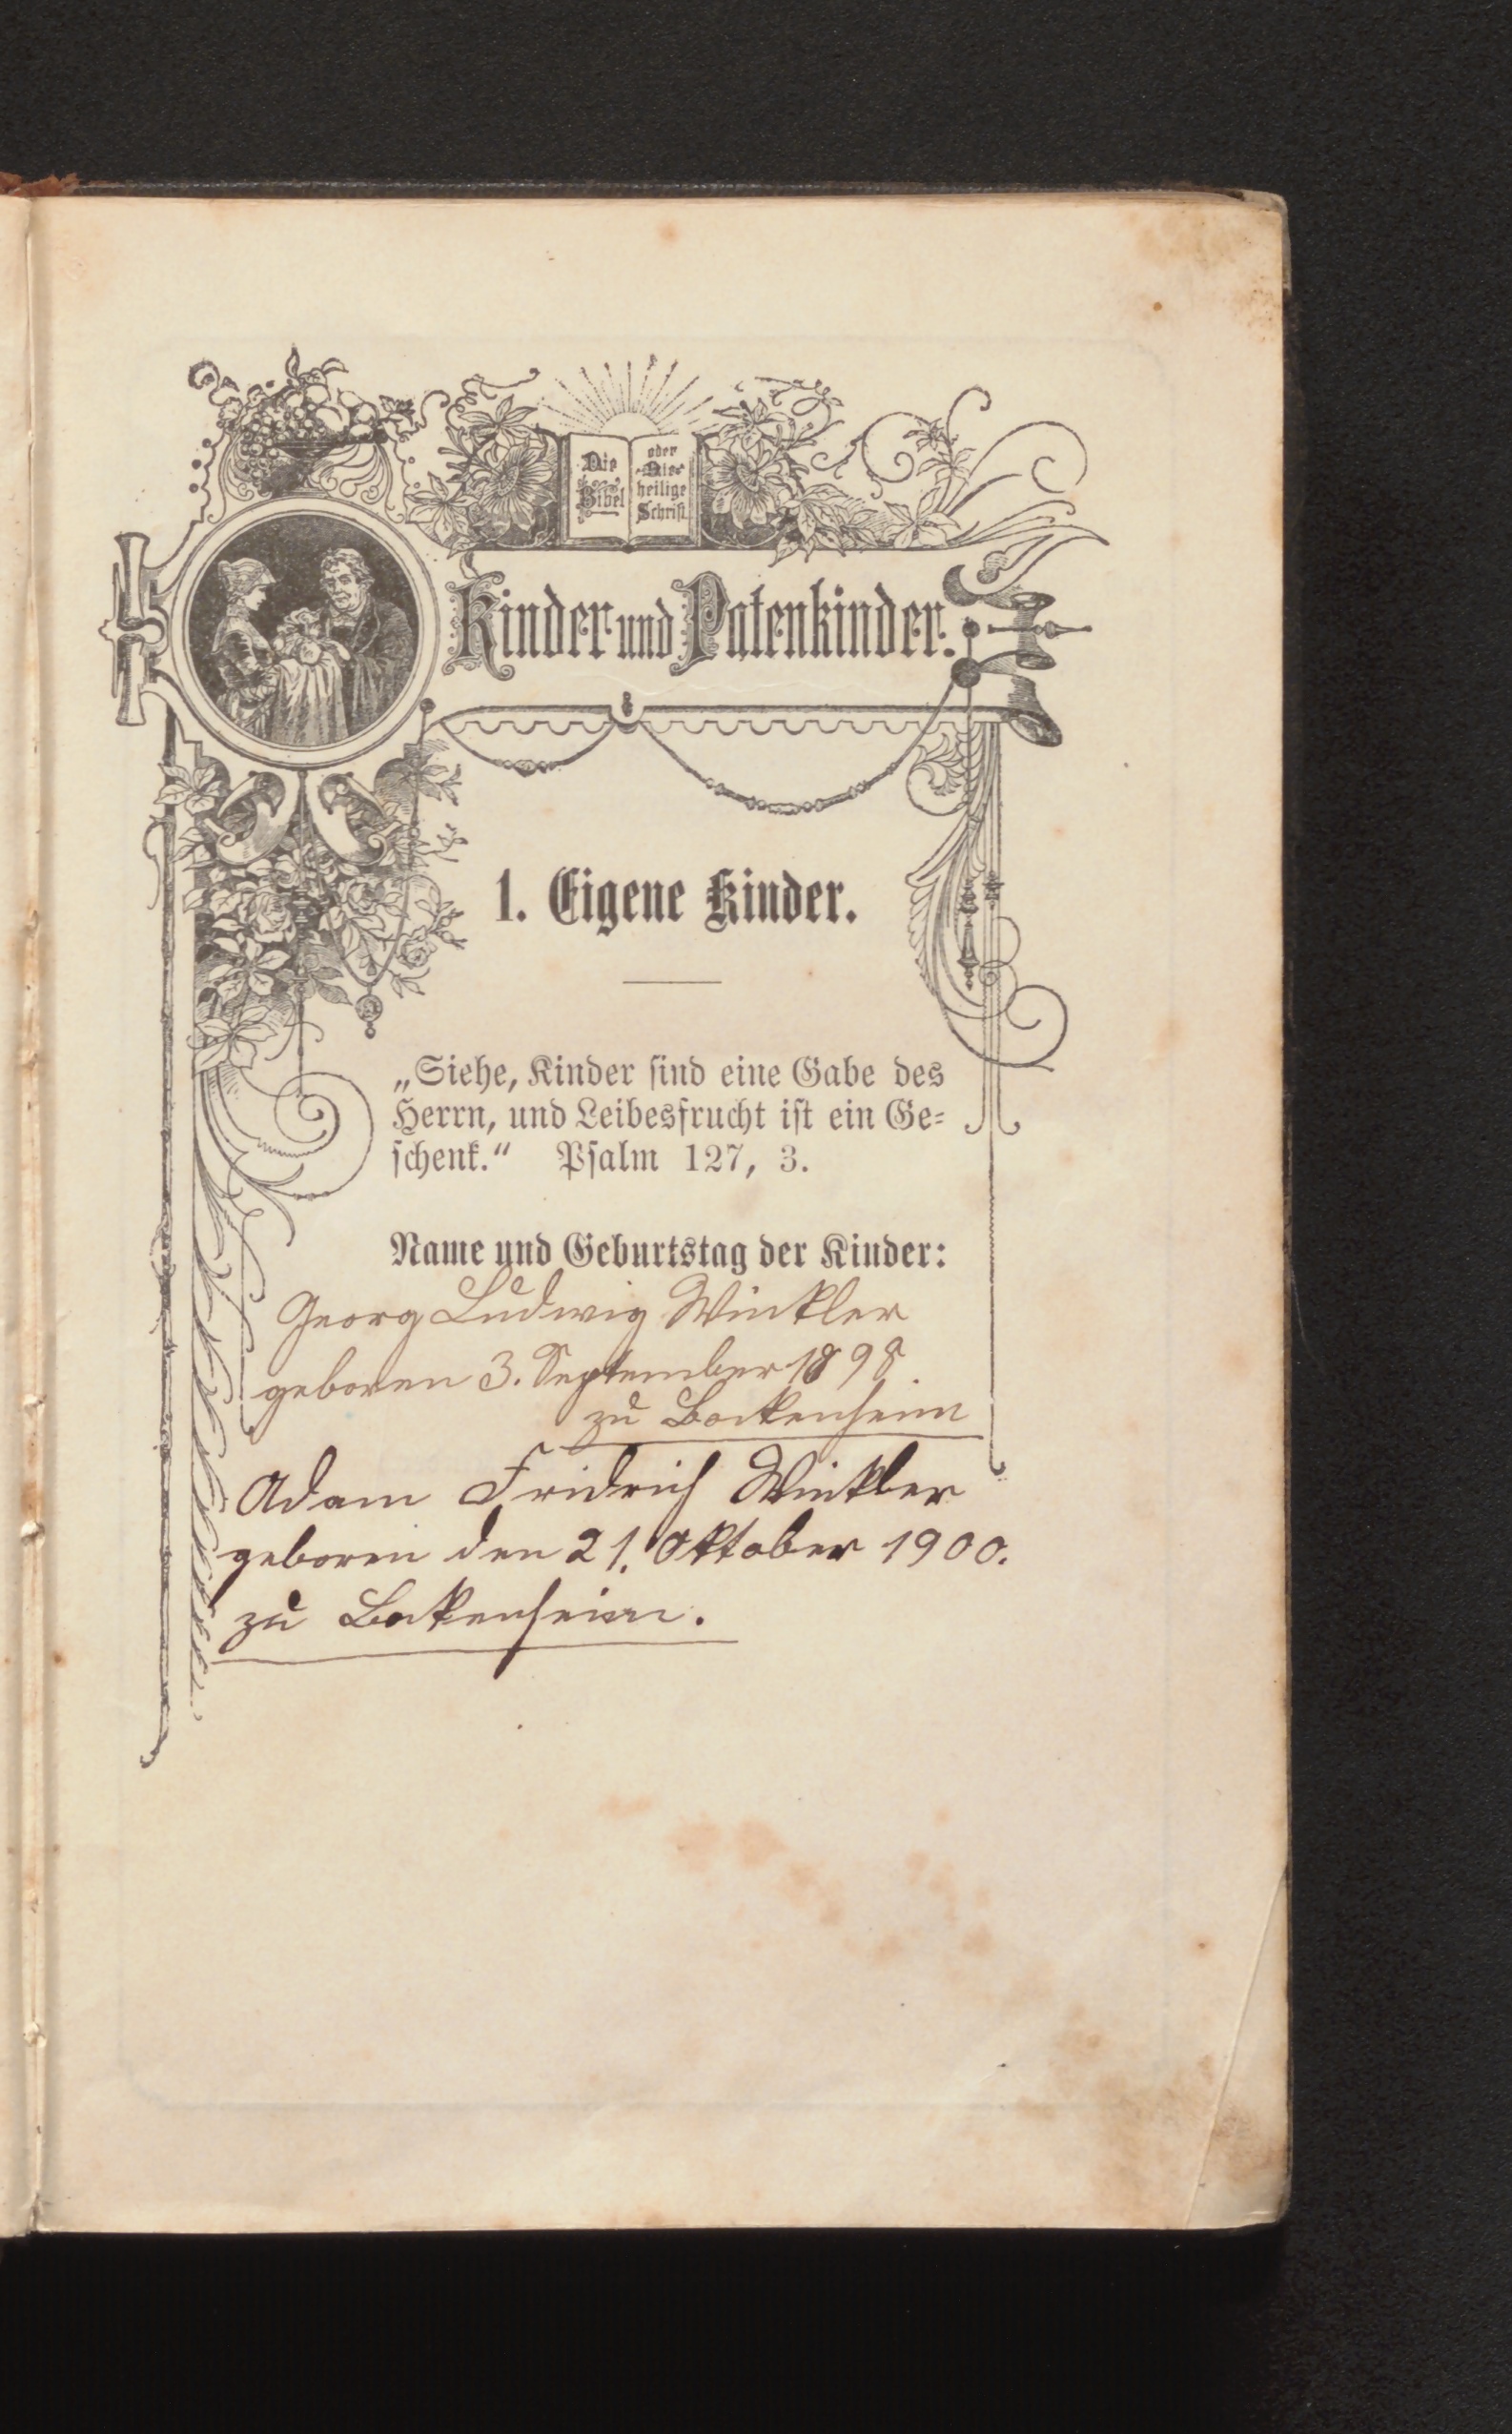 Die Bibel
oder
Die
heilige
Schrift
Kinder und Patenkinder.
1. Eigene Kinder.
„Siehe, Kinder sind eine Gabe des
Herrn, und Leibesfrucht ist ein Ge-
schenk.“ Psalm 127, 3.
Name und Geburtstag der Kinder:
Georg Ludwig Winkler
geboren 3. September 1898.
zu Bockenheim
Adam Fridrich Winkler
geboren den 21. Oktober 1900.
zu Bokenheim.